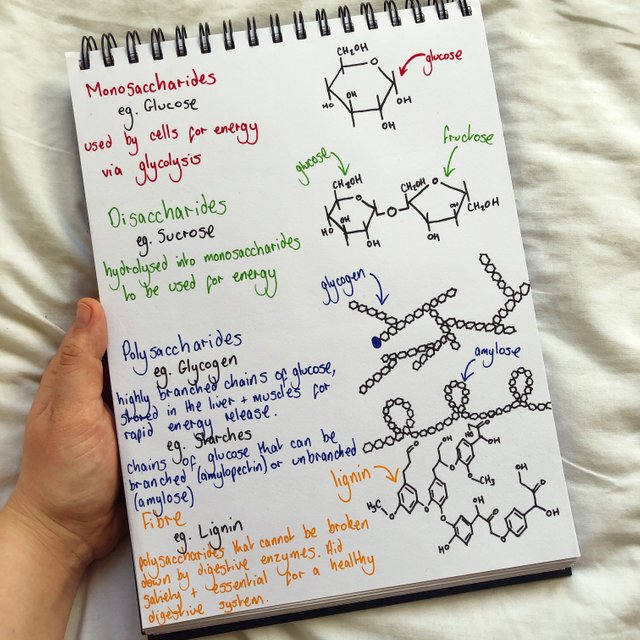 Monosaccharides
eg. Glucose
used by cells for energy
via glycolysis
CH₂OH
glucose
HO
OH
OH
OH
Disaccharides
eg. Sucrose
hydrolysed into monosaccharides
to be used for energy
glucose
fructose
CH₂OH
CH₂OH
HO
OH
OH
O
OH
OH
CH₂OH
Polysaccharides
eg. Glycogen
highly branched chains of glucose,
stored in the liver + muscles for
rapid energy release.
eg. Starches
chains of glucose that can be
branched (amylopectin) or unbranched
(amylose)
glycogen
amylose
Fibre
eg. Lignin
polysaccharides that cannot be broken
down by digestive enzymes. Aid
satiety + essential for a healthy
digestive system.
lignin
H₃C
O
OH
HO
O
CH₃
OH
OH
O
HO
OH